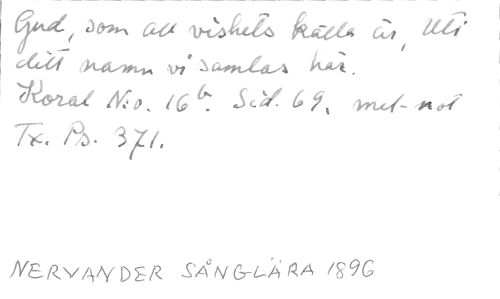 Gud, som all vishets källa är, Uti
ditt namn vi samlas här.
Koral N:o. 16 b. Sid. 69, mel-not
Tx. Ps. 371.
NERVANDER SÅNGLÄRA 1896